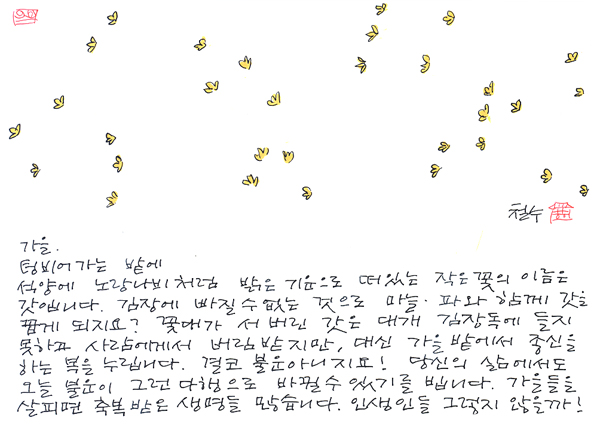 철수
가을.
텅비어가는 밭에
석양에 노랑나비처럼 밝은 기운으로 떠있는 작은 꽃의 이름은
갓입니다. 김장에 빠질 수 없는 것으로 마늘·파와 함께 갓을
꼽게 되지요? 꽃대가 서 버린 갓은 대개 김장독에 들지
못하고 사람에게서 버림받지만, 대신 가을 밭에서 종신을
하는 복을 누립니다. 결코 불운아니지요! 당신의 삶에서도
오늘 불운이 그런 다행으로 바뀔 수 있기를 빕니다. 가을들을
살피면 축복 받은 생명들 많습니다. 인생인들 그렇지 않을까!